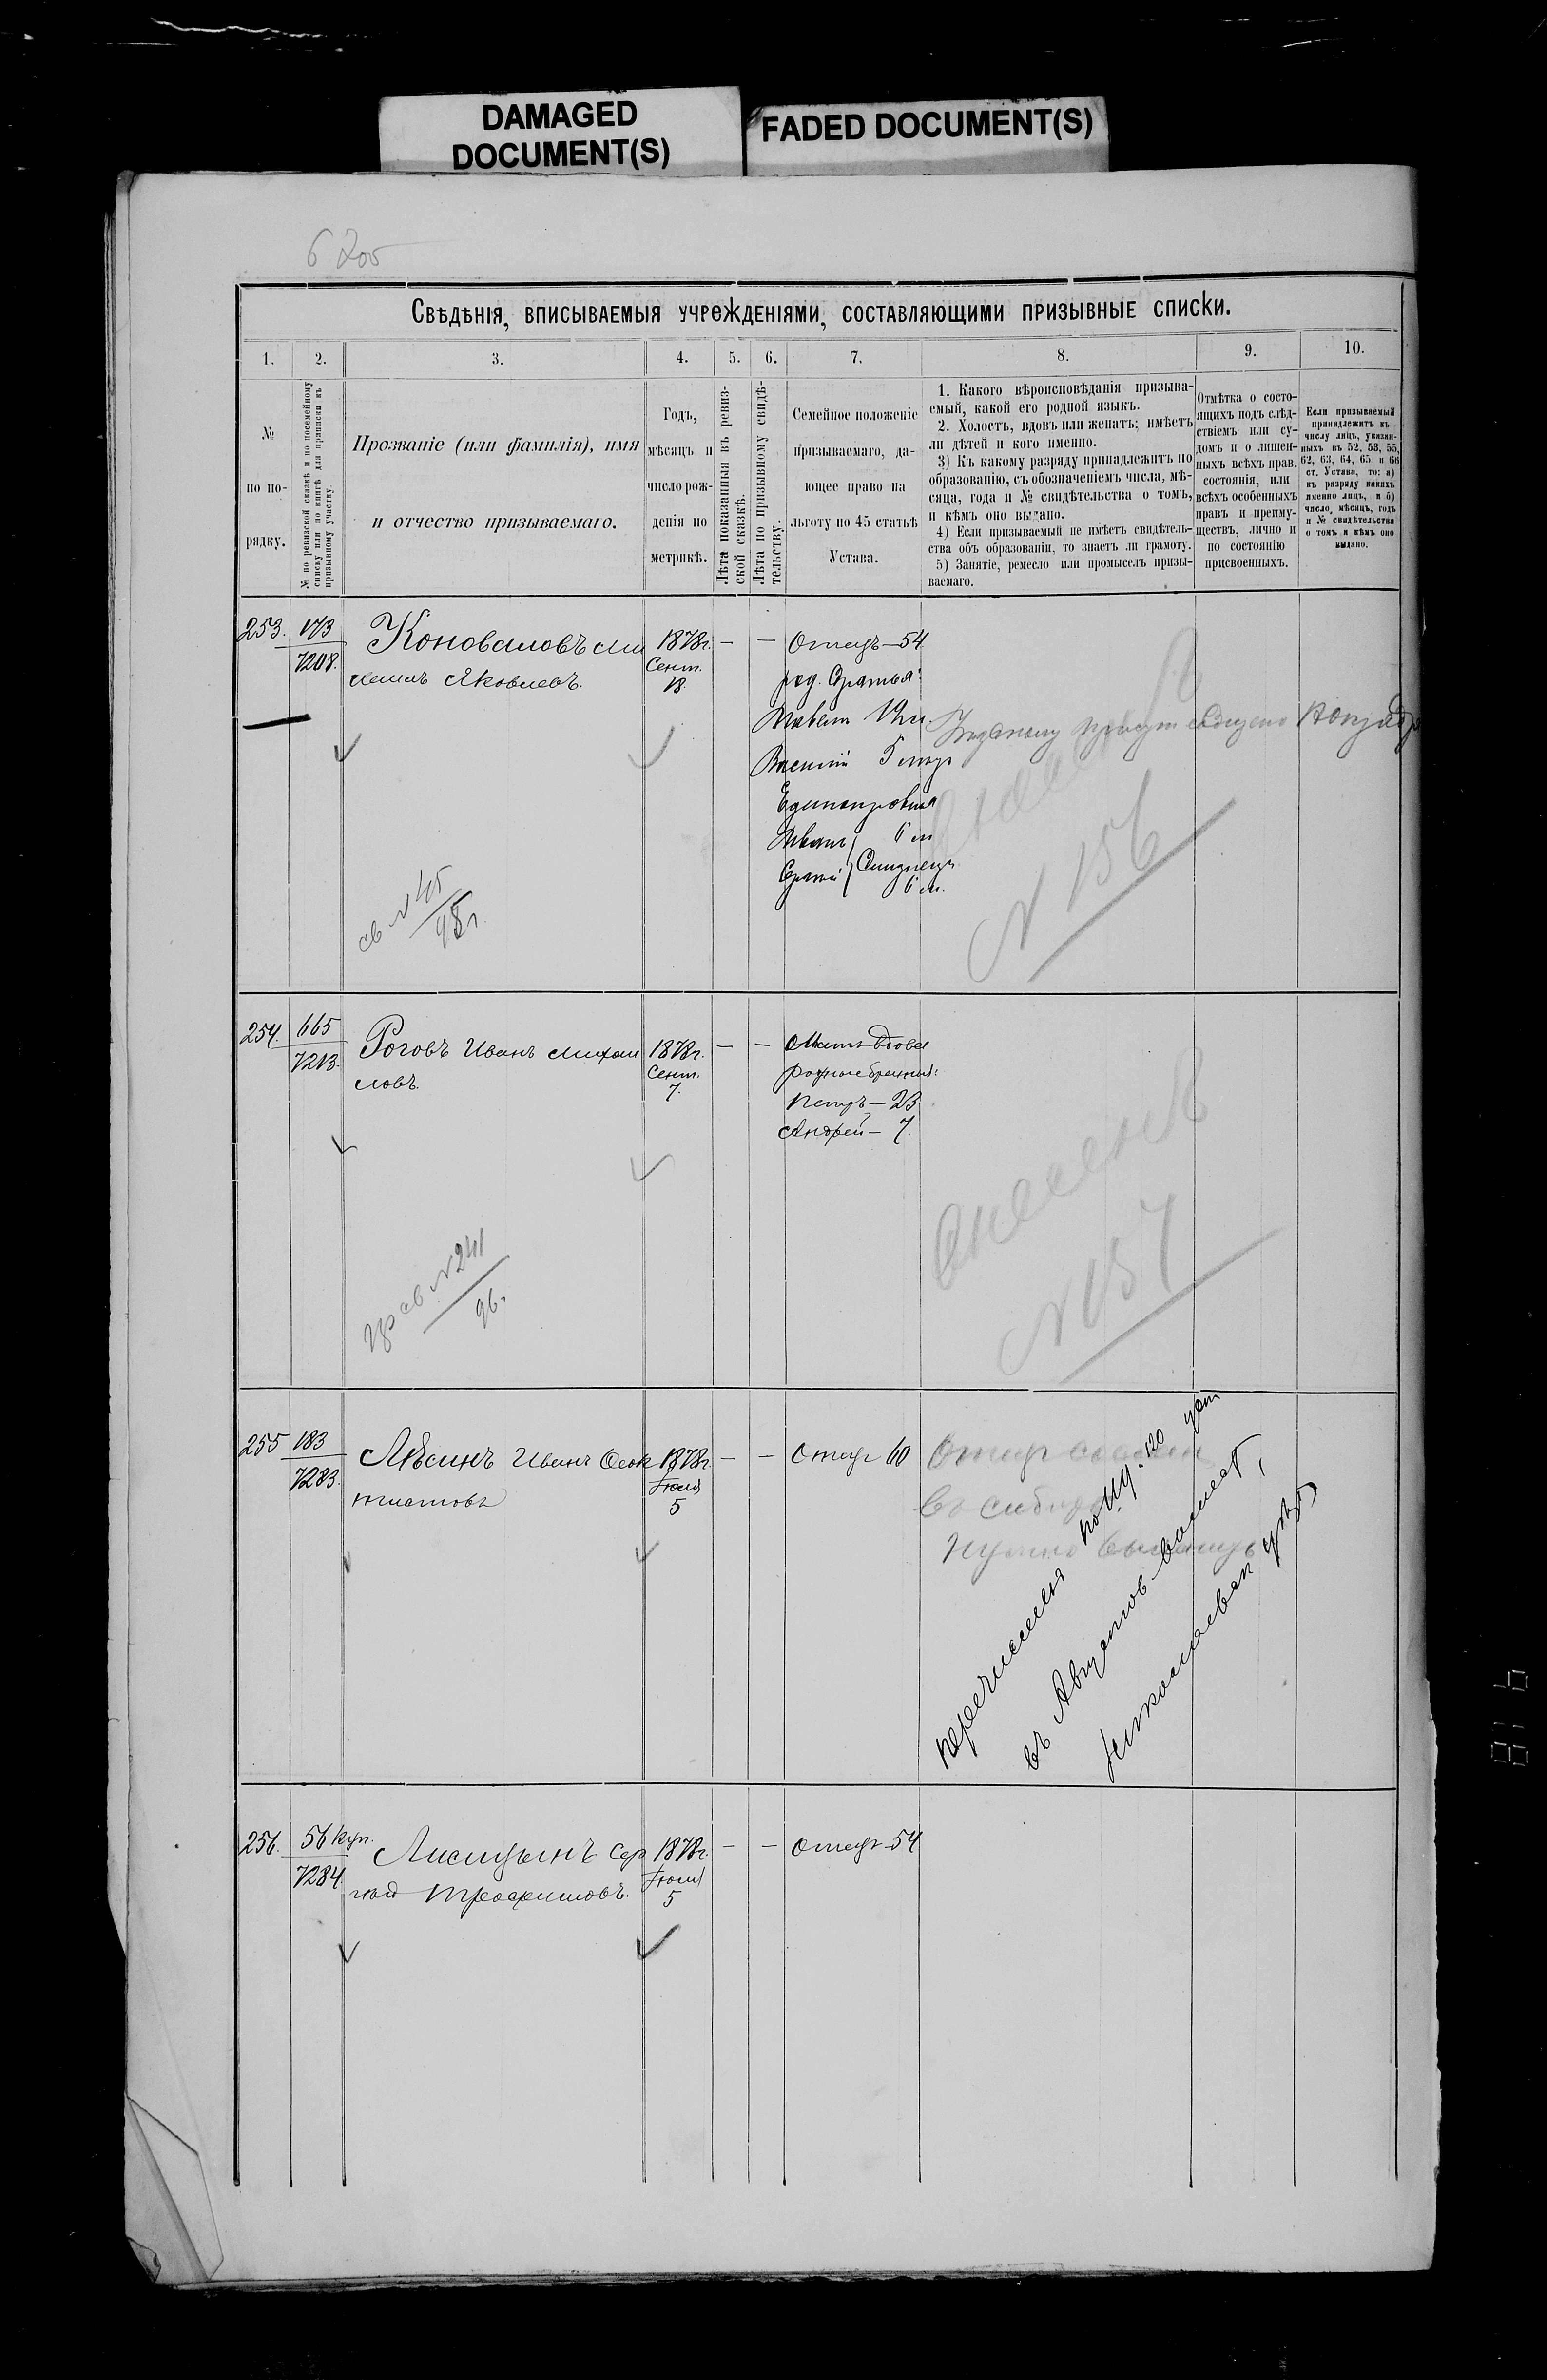 DAMAGED
DOCUMENT(S)
FADED DOCUMENT(S)
Свѣдѣнія, вписываемыя учрежденіями, составляющими призывные списки.
1.
2.
3.
4.
5.
6.
7.
8.
9.
10.
№
по по-
рядку.
№ по ревизской сказкѣ и по посемейному
списку или по книгѣ для приписки къ
призывному участку.
Прозваніе (или фамилія), имя
и отчество призываемаго.
Годъ,
мѣсяцъ и
число рож-
денія по
метрикѣ.
Лѣта показанныя въ ревиз-
ской сказкѣ.
Лѣта по призывному свидѣ-
тельству.
Семейное положеніе
призываемаго, да-
ющее право на
льготу по 45 статьѣ
Устава.
1. Какого вѣроисповѣданія призыва-
емый, какой его родной языкъ.
2. Холостъ, вдовъ или женатъ; имѣетъ
ли дѣтей и кого именно.
3) Къ какому разряду принадлежитъ по
образованію, съ обозначеніемъ числа, мѣ-
сяца, года и № свидѣтельства о томъ,
и кѣмъ оно выдано.
4) Если призываемый не имѣетъ свидѣтель-
ства объ образованіи, то знаетъ ли грамоту.
5) Занятіе, ремесло или промыселъ призы-
ваемаго.
Отмѣтка о состо-
ящихъ подъ слѣд-
ствіемъ или су-
домъ и о лишен-
ныхъ всѣхъ прав.
состоянія, или
всѣхъ особенныхъ
правъ и преиму-
ществъ, лично и
по состоянію
присвоенныхъ.
Если призываемый
принадлежитъ къ
числу лицъ, указан-
ныхъ въ 52, 53, 55,
62, 63, 64, 65 и 66
ст. Устава, то: а)
къ разряду какихъ
именно лицъ, и б)
число, мѣсяцъ, годъ
и № свидѣтельства
о томъ и кѣмъ оно
выдано.
253. 173 Коноваловъ Ми 1878г. — — Отецъ—54
7208. хаилъ Яковлевъ. Сент.
18.
род. братья:
Павелъ
Василій
Единокровные
Иванъ 6 л
св №45
98г.
N 156
254. 665 Роговъ Иванъ Михаи 1878г. — — Мать вдова
7213. ловъ. Сент. родные братья:
7. Петръ—23
Андрей—7.
внесенъ
N 157
св №241
96.
255 183 Лѣсинъ Иванъ 1878г. — — Отецъ 60
7283. Іюля
5
Отецъ
въ Сибири
нужно
перечисленъ
въ
256. 56 куп. Лисицынъ Сер 1878г. — — отецъ—54
7284. гѣй Трофимовъ. Іюля
5